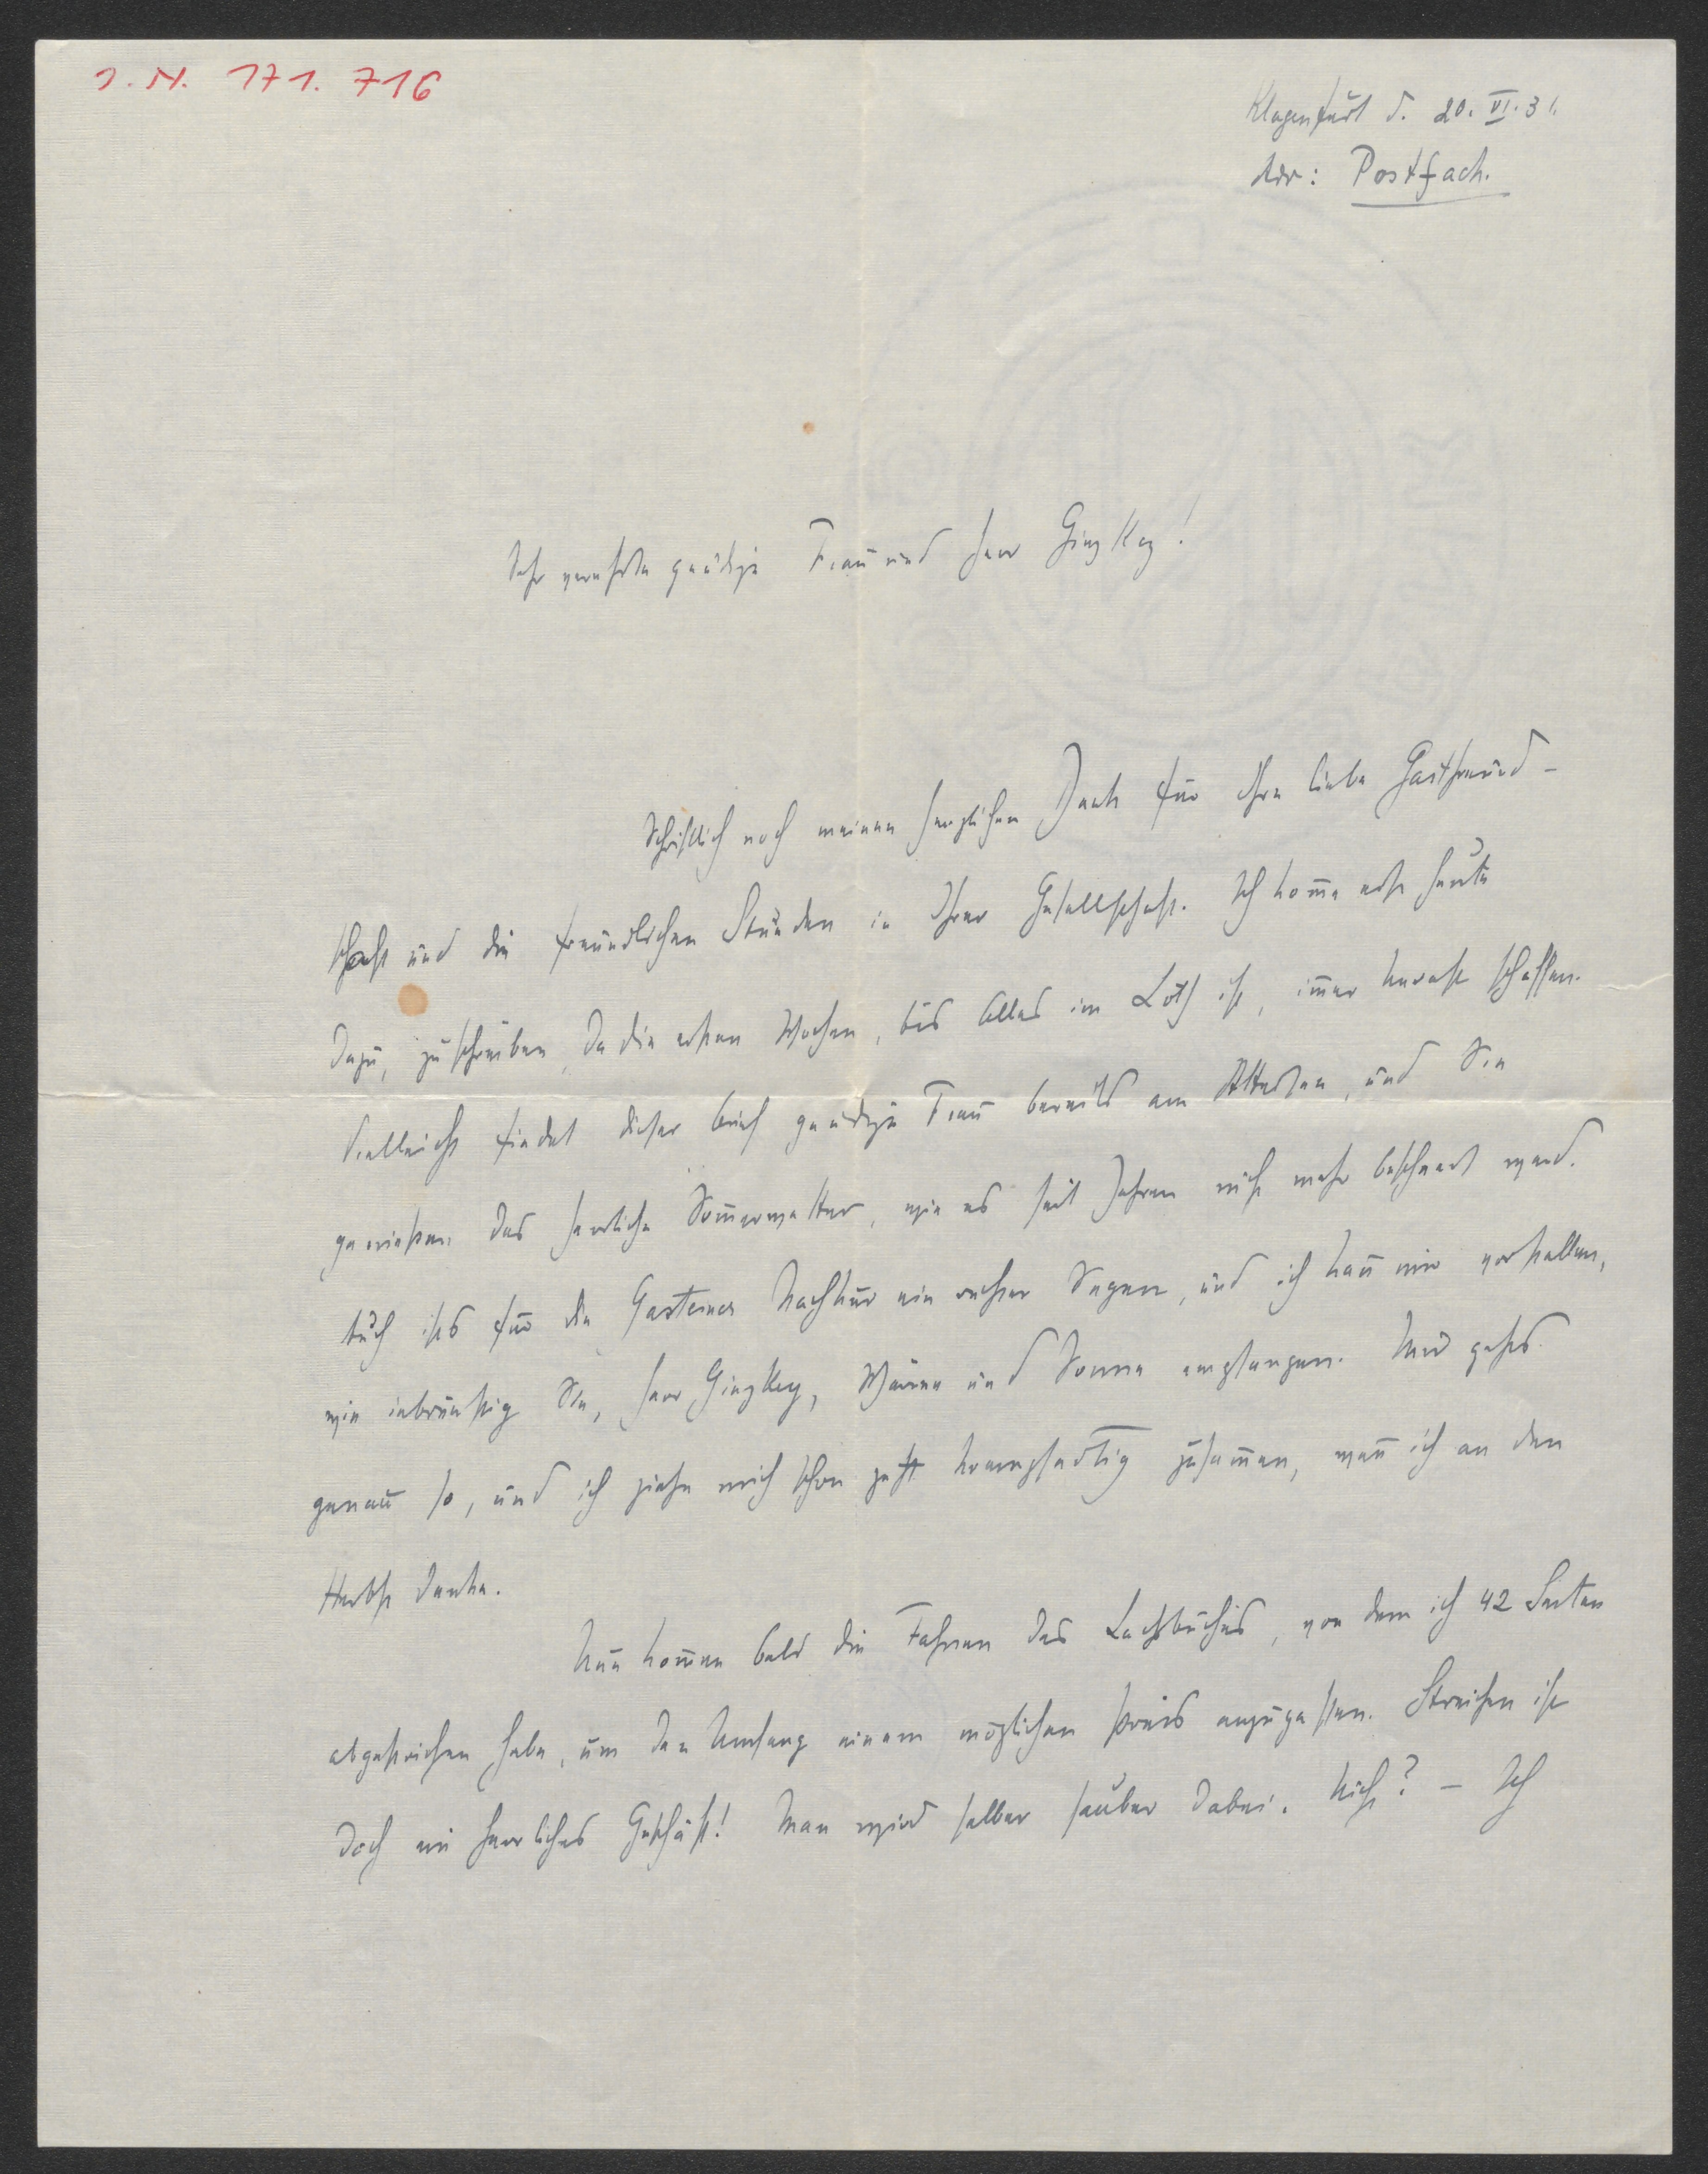 J. N. 171.716
Klagenfurt d. 20. VI. 31.
Adr: Postfach.
Sehr verehrte gnädige Frau und Herr Ginzkey!
Schriftlich noch meinen herzlichen Dank für Ihre liebe Gastfreund-
schaft und die freundlichen Stunden in Ihrer Gesellschaft. Ich kom̄e erst heute
dazu, zu schreiben, da die ersten Wochen, bis Alles im Loth ist, im̄er schaffen.
Vielleicht findet dieser Brief gnädige Frau bereits am Attersee, und Sie
genießen das herrliche Som̄erwetter, wie es seit Jahren nicht mehr beschert ward.
Auch ists für die Gasteiner Nachkur ein wahrer Segen, und ich kan̄ mir vorstellen,
wie inbrünstig Sie, Herr Ginzkey, Wärme und Sonne empfangen. Mir gehts
genau so, und ich ziehe mich schon jetzt krampfartig zusam̄en, wen̄ ich an den
Herbst denke.
Nun kom̄en bald die Fahnen des Buches, von dem ich 42 Seiten
abgestrichen habe, um den Umfang einem möglichen Preis anzupassen. Streichen ist
doch ein herrliches Geschäft! Man wird selber sauber dabei. Nicht? – Ich